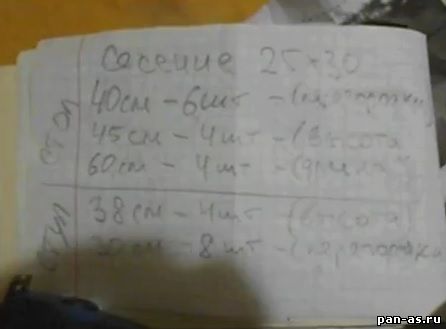 сечение 25×30
стол
40см - 6шт - (
45см - 4шт - (высота
60см - 4шт - (длина
стул
38см - 4шт (высота)
30см - 8шт - (
pan-as.ru